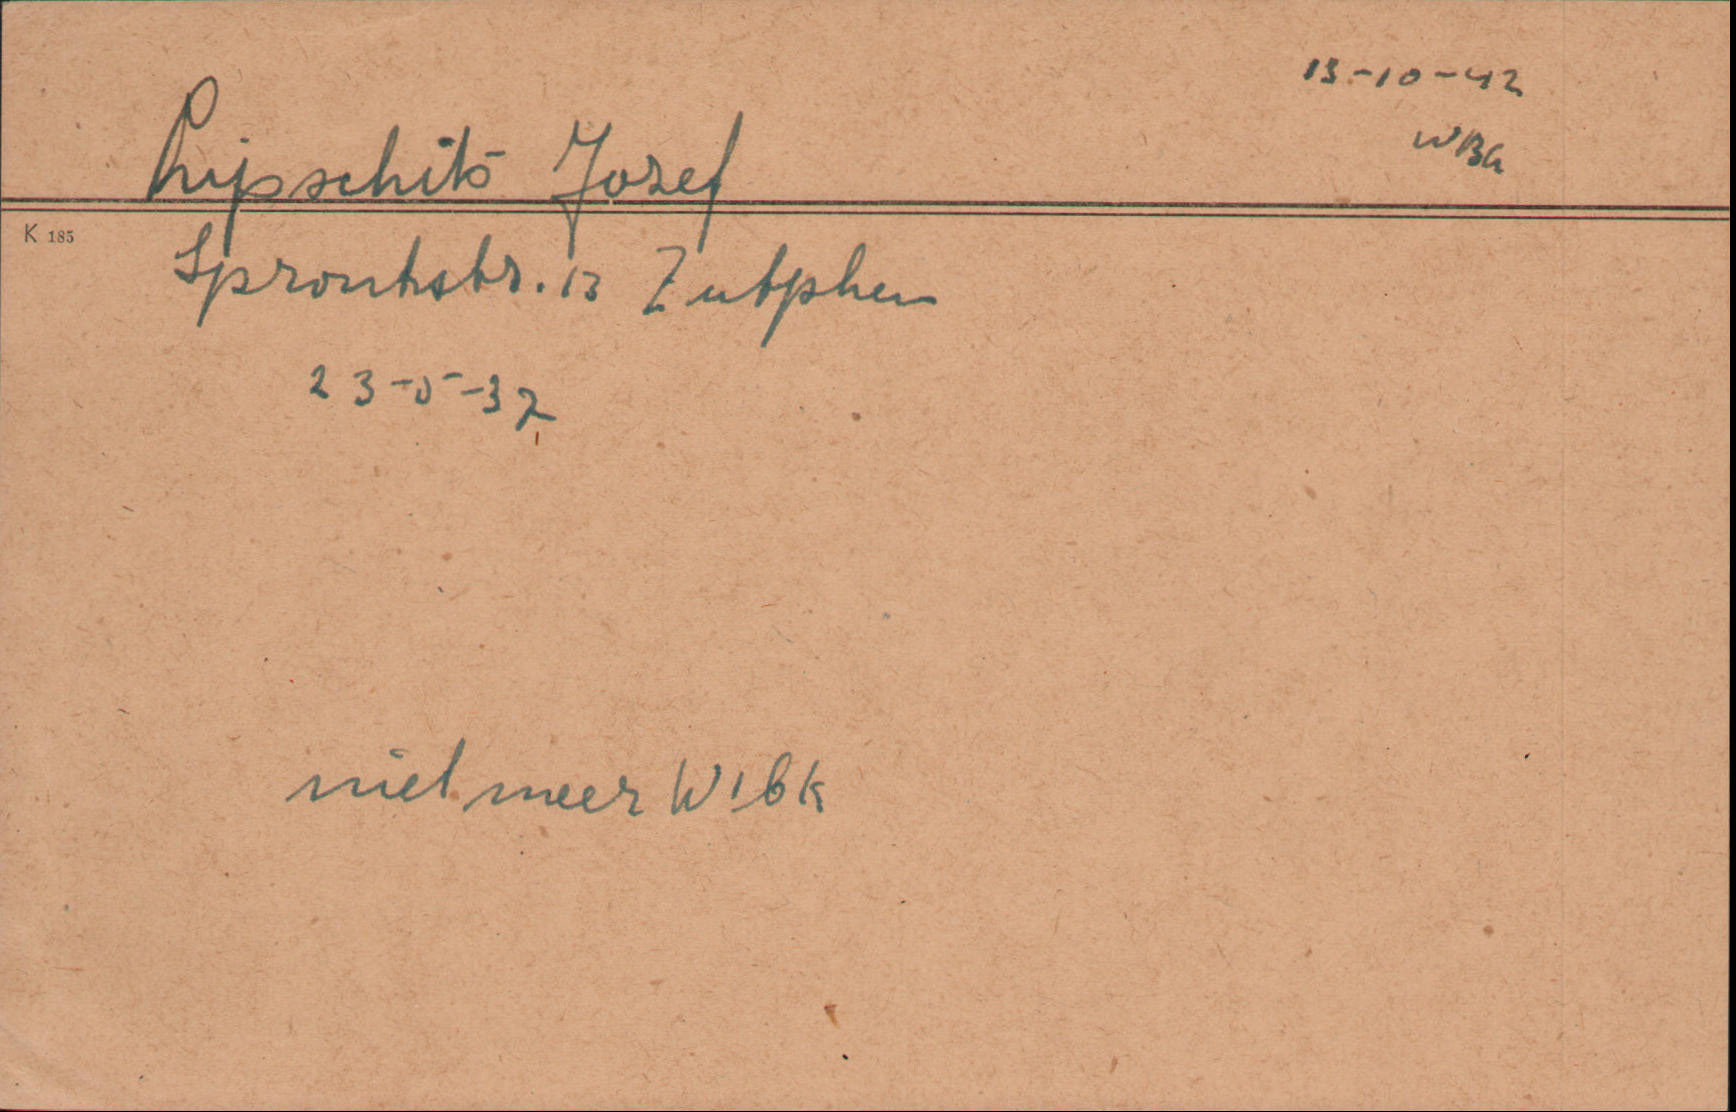 13-10-42
WBG
Lipschits Jozef
K 185
Spronkstr. 13 Zutphen
23-5-37
niet meer W'bk